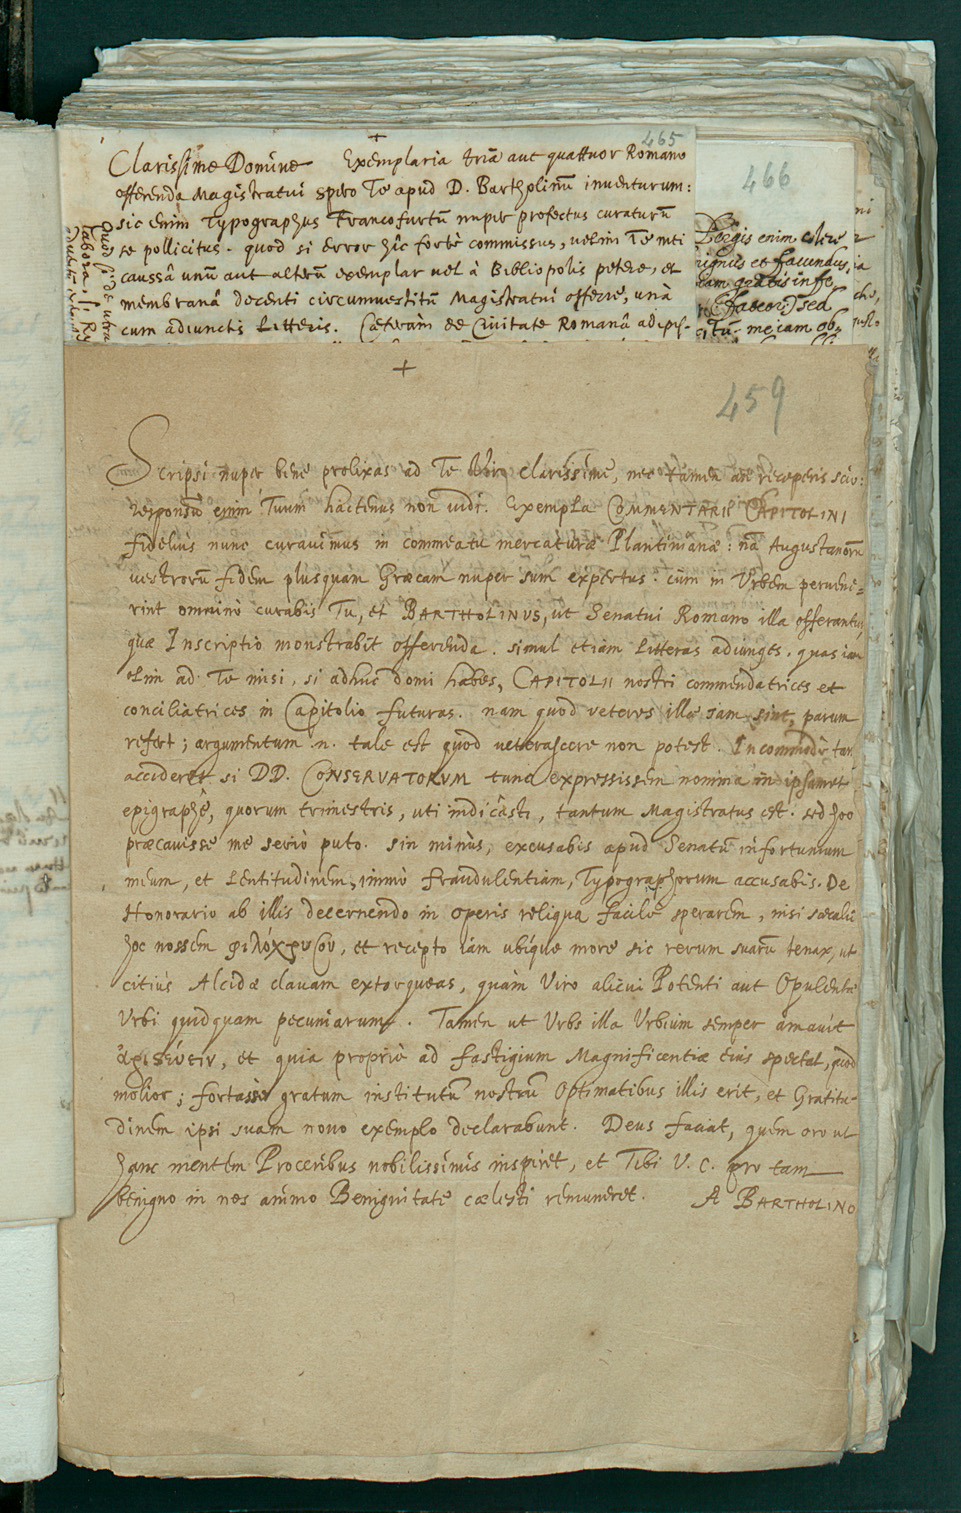 465
Clarissime Domine Exemplaria tria aut quattuor Romano
offerenda Magistratui spero Te apud D. Bartholinũ inventurum:
sic enim Typographus Francofurtũ nuper profectus curaturũ
se pollicitus. quod si error hîc fortè commissus, velim Te mei
caussâ unũ aut alterũ exemplar vel à Bibliopolis petere, et
membranâ decenti circumvestitũ Magistratui offerre, unà
cum adiunctis Litteris. Cæterùm de Civitate Romanâ adipis-
466
Pergis enim colere
et facundus,
gratis
(fateor) sed
meiam ob
459
Scripsi nuper bene prolixas ad Te Vir clarissime, nec tamen an receperis scio:
responsũ enim Tuum hactenus non vidi. Exempla COMMENTARII CAPITOLINI
fideliùs nunc curavimus in commeatu mercaturæ Plantinianæ: nã Augustanorũ
vestrorũ fidem plusquam Græcam nuper sum expertus. cùm in Urbem pervene=
rint omninò curabis Tu, et BARTHOLINVS, ut Senatui Romano illa offerantur,
quæ Inscriptio monstrabit offerenda. simul etiam Litteras adiunges, quas iam
olim ad Te misi, si adhuc domi habes, CAPITOLII nostri commendatrices et
conciliatrices in Capitolio futuras. nam quod veteres illæ iam sint, parum
refert; argumentum .n. tale est quod veterascere non potest. Incommodè tam
accideret si DD. CONSERVATORVM tunc expressissem nomina in ipsamet
epigraphê, quorum trimestris, uti indicâsti, tantum Magistratus est. sed hoc
præcavisse me seriò puto. sin minùs, excusabis apud Senatũ infortunium
meum, et Lentitudinem, immò fraudulentiam, Typographorum accusabis. De
Honorario ab illis decernendo in operis reliqua facilè sperarem, nisi sæculũ
hoc nossem φιλόχρυσον, et recepto iam ubíque more sic rerum suarũ tenax, ut
citiùs Alcidæ clavam extorqueas, quàm Viro alicui Potenti aut Opulentæ
Urbi quidquam pecuniarum. Tamen ut Urbs illa Urbium semper amavit
ἀριστεύειν, et quia propriè ad fastigium Magnificentiæ eius spectat, quod
molior; fortasse gratum institutũ nostrũ Optimatibus illis erit, et Gratitu-
dinem ipsi suam novo exemplo declarabunt. Deus faciat, quem oro ut
hanc mentem Proceribus nobilissimis inspiret, et Tibi V. C. pro tam
benigno in nos animo Benignitate cælesti remuneret. A BARTHOLINO